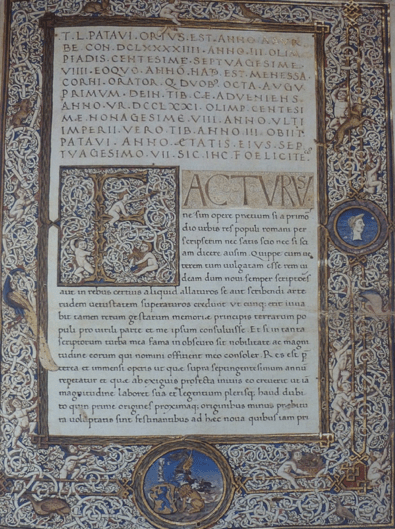 T. L. PATAVI. ORIVS. EST. ANNO.
BE. CON. DCLXXXXIIII. ANNO. III. OLIM
PIADIS. CENTESIME. SEPTVAGESIME.
VIIII. EOQVE. ANNO. HAB. EST. MENESSA.
CORHI. ORATOR. Q. DVOBS. OCTA. AVGV.
PRIMVM. DEIN. TIB. CÆ. ADVENIENS.
ANNO. VR. DCCLXXI. OLIMP. CENTESI
MÆ. NONAGESIME. VIIII. ANNO. VLTI
IMPERII. VERO TIB. ANNO. III. OBIIT.
PATAVI. ANNO. ÆTATIS. EIVS. SEP
TVAGESIMO. VII. SIC. IHC. FOELICITE.
FACTVRVS
ne sim operę pręcium si a primo
dio urbis res populi romani per
scripserim nec satis scio nec si sci
am dicere ausim. Quippe cum ue
terem tum uulgatam esse rem ui
deam dum noui semper scriptores
aut in rebus certius aliquid allaturos se aut scribendi arte
rudem uetustatem superaturos credunt. Vt cunque erit iuua
bit tamen rerum gestarum memorię principis terrarum po
puli pro uirili parte et me ipsum consuluisse. Et si in tanta
scriptorum turba mea fama in obscuro sit nobilitate ac magni
tudine eorum qui nomini officient meo consoler. Res est
terea et immensi operis ut quæ supra septingentesimum annum
repetatur et quæ ab exiguis profecta initiis eo creuerit ut iã
magnitudine laboret sua et legentium plerisque haud dubi
to quin primę origines proximaque originibus minus prębitu
ra uoluptatis sint festinantibus ad hęc noua quibus iam pri